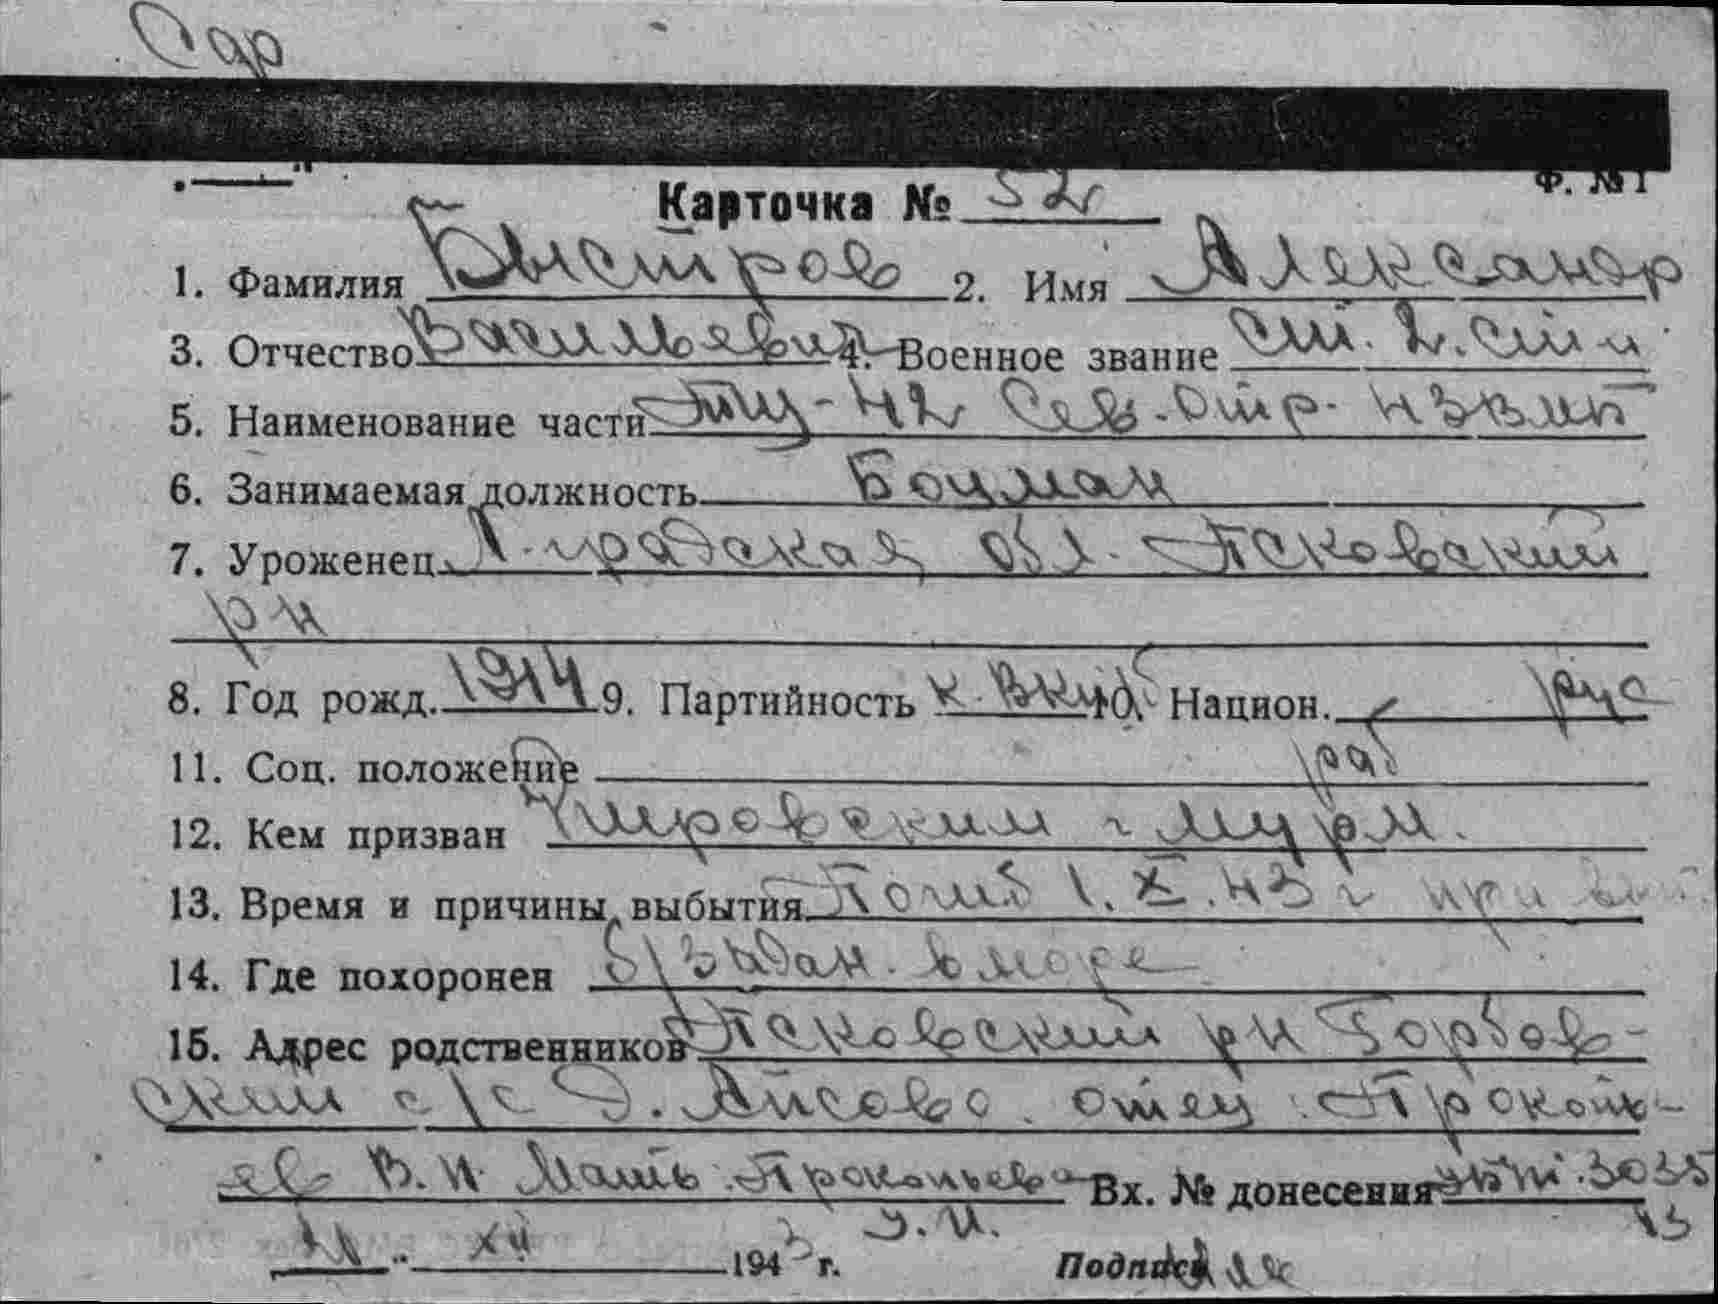 Сдр
Ф. № 1
Карточка № 52
1. Фамилия Быстров 2. Имя Александр
3. Отчество Васильевич 4. Военное звание ст. 2. ст
5. Наименование части ТЩ-42 Сев. отр.
6. Занимаемая должность Боцман
7. Уроженец Л-градская обл. Псковский
рн
8. Год рожд. 1914 9. Партийность к. ВКПб 10. Национ. рус
11. Соц. положение раб
12. Кем призван Кировским г Мурм.
13. Время и причины выбытия Погиб 1.X.43 г при вып.
14. Где похоронен б/задан. в море
15. Адрес родственников Псковский рн Горбов-
ским с/с д. Айсово. отец: Прокопь-
ев В.И. Мать: Прокопьева Вх. № донесения 3035
У. И. 43
XII 1943 г. Подпись